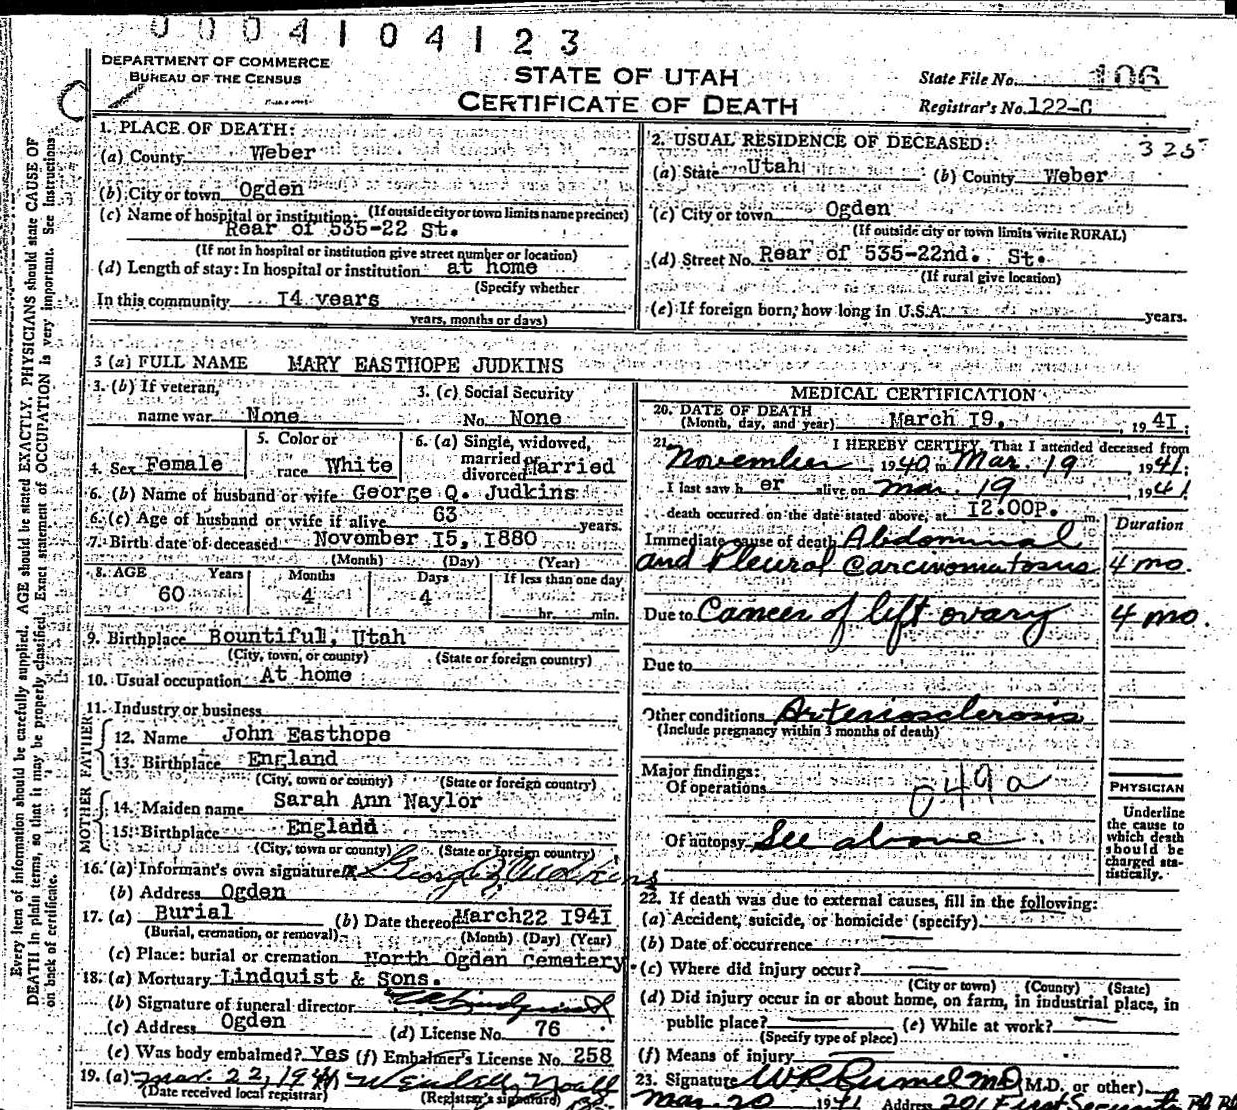 0004104123
DEPARTMENT OF COMMERCE
BUREAU OF THE CENSUS
STATE OF UTAH
CERTIFICATE OF DEATH
State File No. 106
Registrar's No. 122-C
325
1. PLACE OF DEATH:
(a) County Weber
(b) City or town Ogden
(If outside city or town limits name precinct)
(c) Name of hospital or institution:
Rear of 535-22 St.
(If not in hospital or institution give street number or location)
(d) Length of stay: In hospital or institution at home
(Specify whether
In this community 14 years
years, months or days)
2. USUAL RESIDENCE OF DECEASED:
(a) State Utah (b) County Weber
(c) City or town Ogden
(If outside city or town limits write RURAL)
(d) Street No. Rear of 535-22nd. St.
(If rural give location)
(e) If foreign born, how long in U.S.A. years.
3 (a) FULL NAME MARY EASTHOPE JUDKINS
3. (b) If veteran,
name war None
3. (c) Social Security
No. None
4. Sex Female
5. Color or
race White
6. (a) Single, widowed,
married or
divorced Married
6. (b) Name of husband or wife George Q. Judkins
6. (c) Age of husband or wife if alive 63 years.
7. Birth date of deceased November 15, 1880
(Month) (Day) (Year)
8. AGE Years Months Days If less than one day
60 4 4 hr. min.
9. Birthplace Bountiful, Utah
(City, town, or county) (State or foreign country)
10. Usual occupation At home
11. Industry or business
FATHER
12. Name John Easthope
13. Birthplace England
(City, town or county) (State or foreign country)
MOTHER
14. Maiden name Sarah Ann Naylor
15. Birthplace England
(City, town or county) (State or foreign country)
16. (a) Informant's own signature X George Q Judkins
(b) Address Ogden
17. (a) Burial (b) Date thereof March 22 1941
(Burial, cremation, or removal) (Month) (Day) (Year)
(c) Place: burial or cremation North Ogden Cemetery
18. (a) Mortuary Lindquist & Sons.
(b) Signature of funeral director Lindquist
(c) Address Ogden (d) License No. 76
(e) Was body embalmed? Yes (f) Embalmer's License No. 258
19. (a) Mar. 22, 1941 Wendell Noall
(Date received local registrar) (Registrar's signature)
MEDICAL CERTIFICATION
20. DATE OF DEATH
(Month, day, and year) March 19, 1941;
21. I HEREBY CERTIFY, That I attended deceased from
November, 1940 to Mar. 19, 1941;
I last saw h er alive on Mar. 19, 1941
death occurred on the date stated above, at 12.00P. m.
Duration
Immediate cause of death Abdominal
and Pleural Carcinomatosus 4 mo.
Due to Cancer of left ovary 4 mo.
Due to
Other conditions Arteriosclerosis
(Include pregnancy within 3 months of death)
Major findings:
Of operations 049a
Of autopsy See above
PHYSICIAN
Underline
the cause to
which death
should be
charged sta-
tistically.
22. If death was due to external causes, fill in the following:
(a) Accident, suicide, or homicide (specify)
(b) Date of occurrence
(c) Where did injury occur?
(City or town) (County) (State)
(d) Did injury occur in or about home, on farm, in industrial place, in
public place? (e) While at work?
(Specify type of place)
(f) Means of injury
23. Signature M.D. or other)
Mar 20 1941 Address
Every item of information should be carefully supplied. AGE should be stated EXACTLY. PHYSICIANS should state CAUSE OF
DEATH in plain terms, so that it may be properly classified. Exact statement of OCCUPATION is very important. See instructions
on back of certificate.